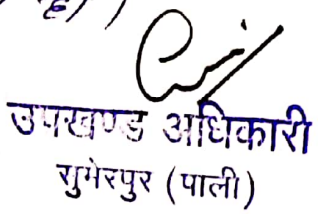 उपखण्ड अधिकारी
सुमेरपुर (पाली)